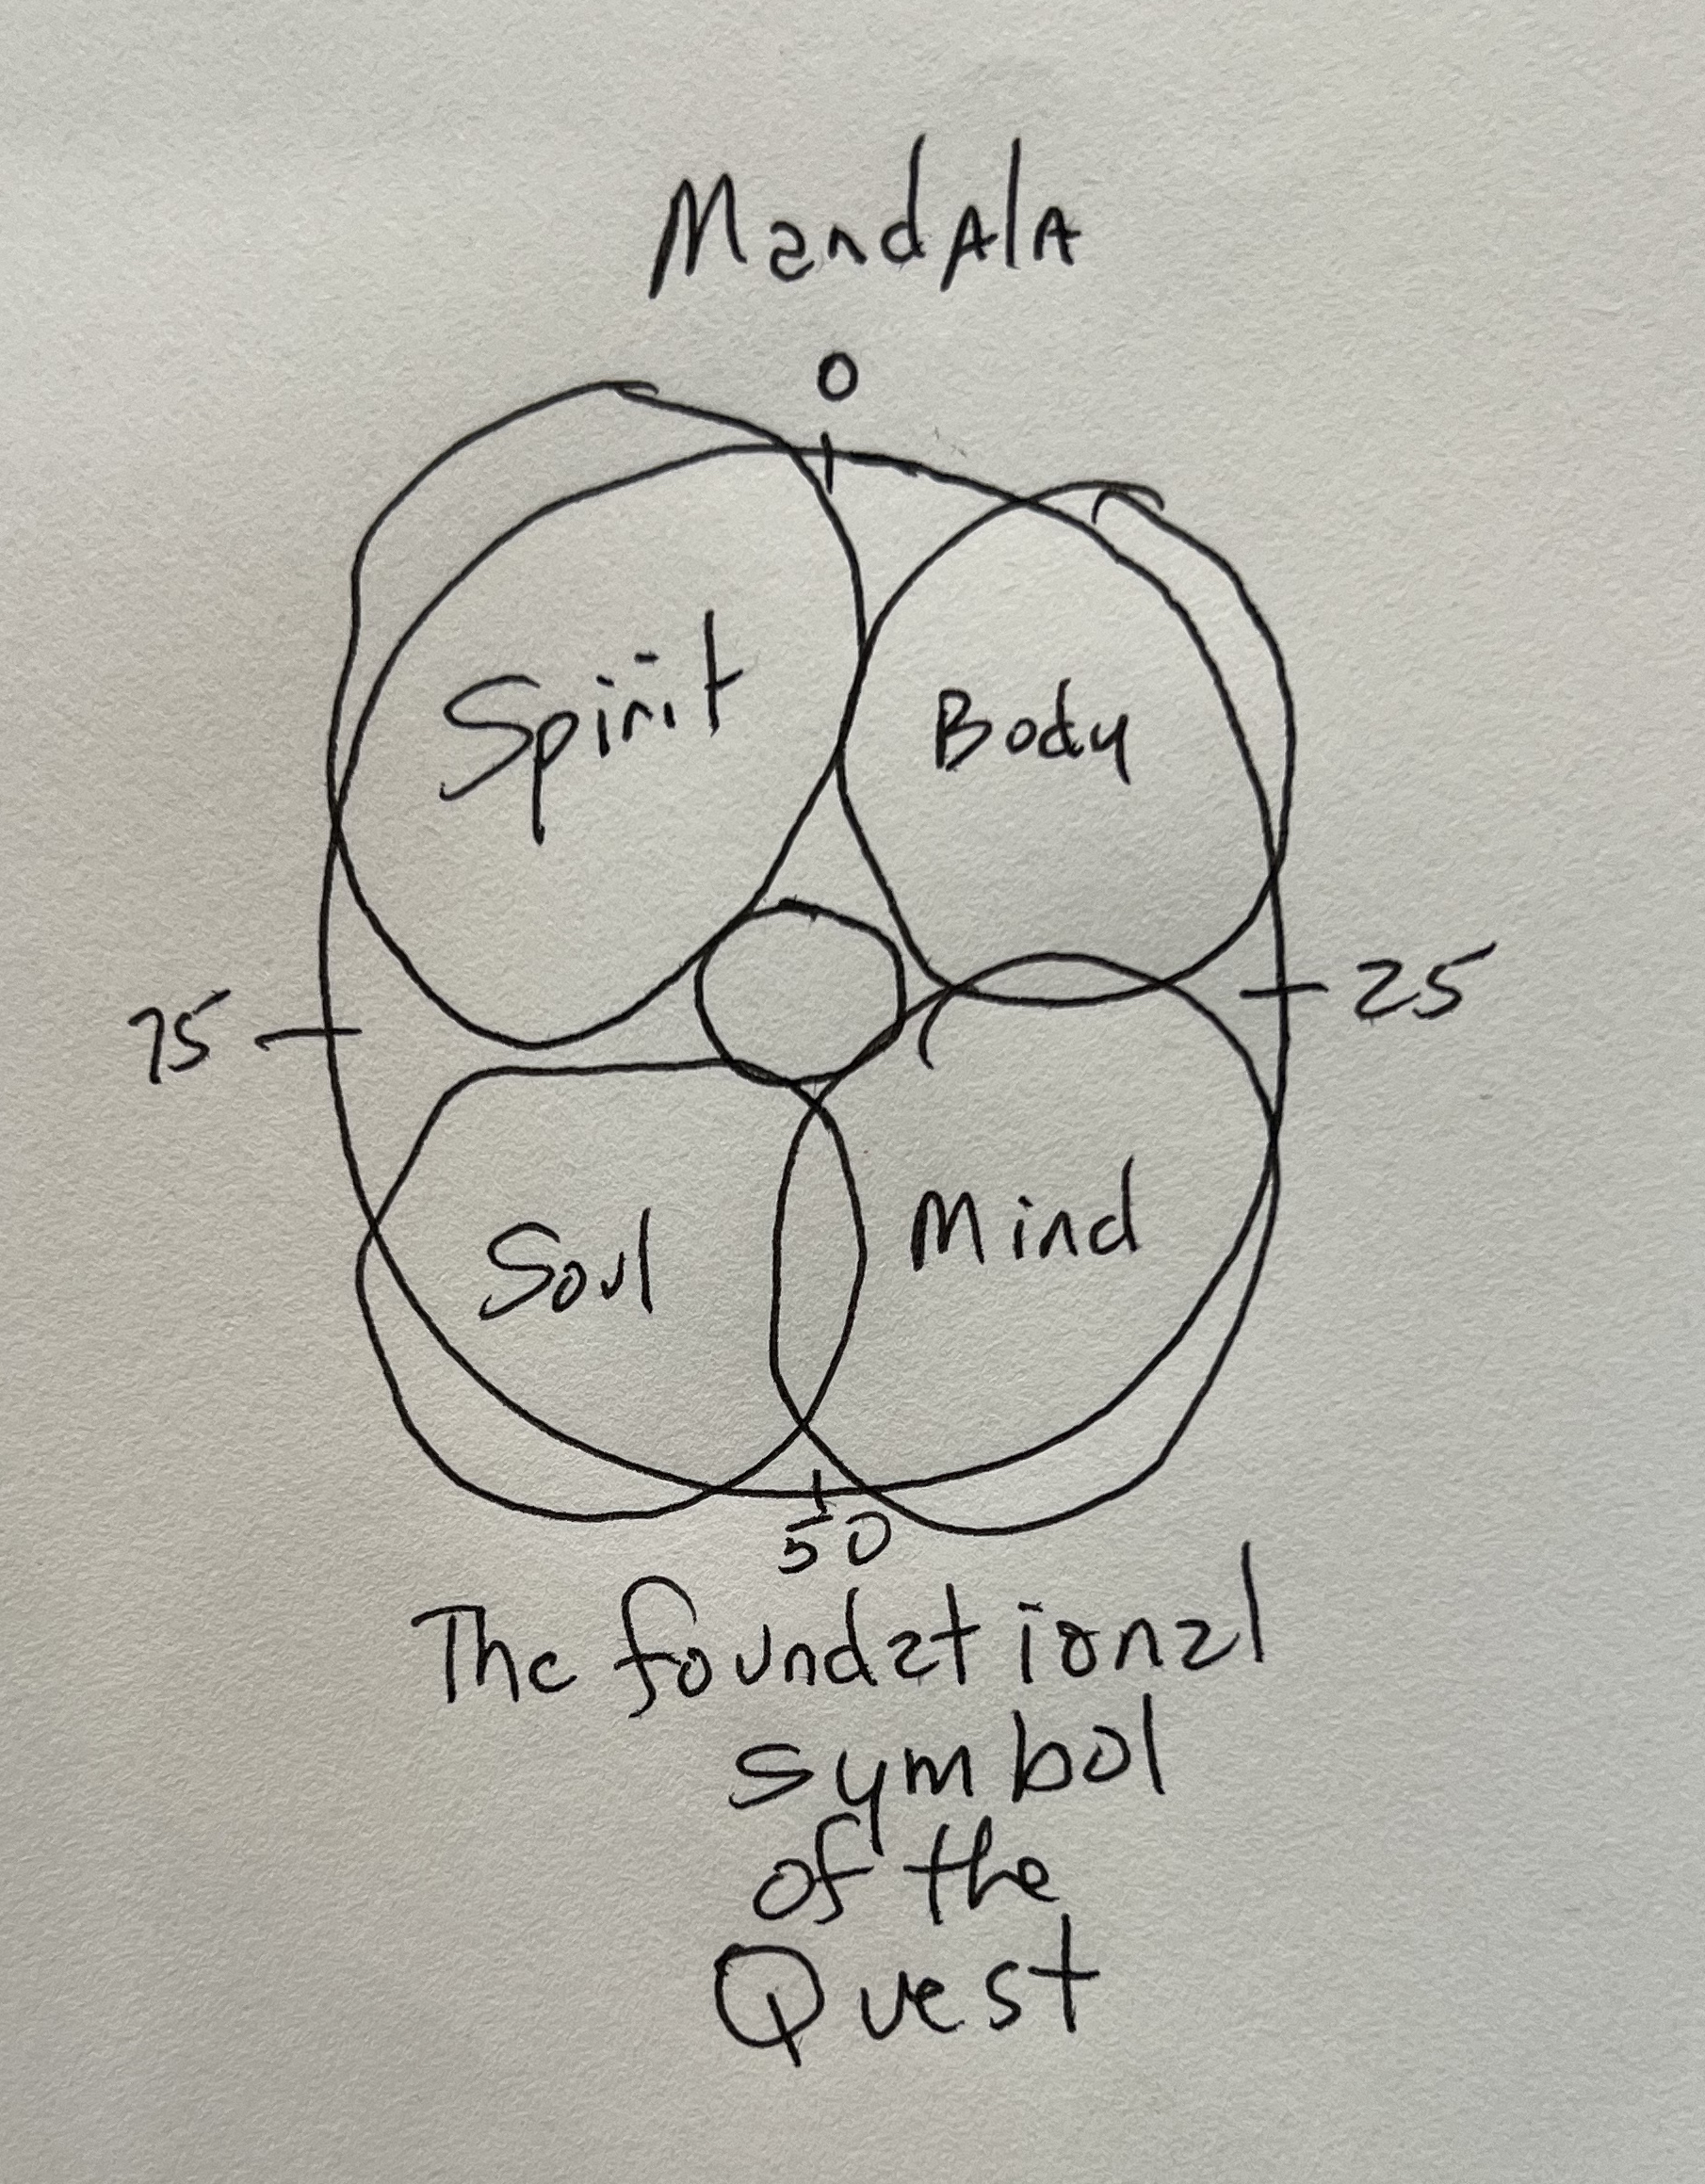 MandAlA
0
Spirit
Body
75
25
Soul
Mind
50
The foundational
symbol
of the
Quest